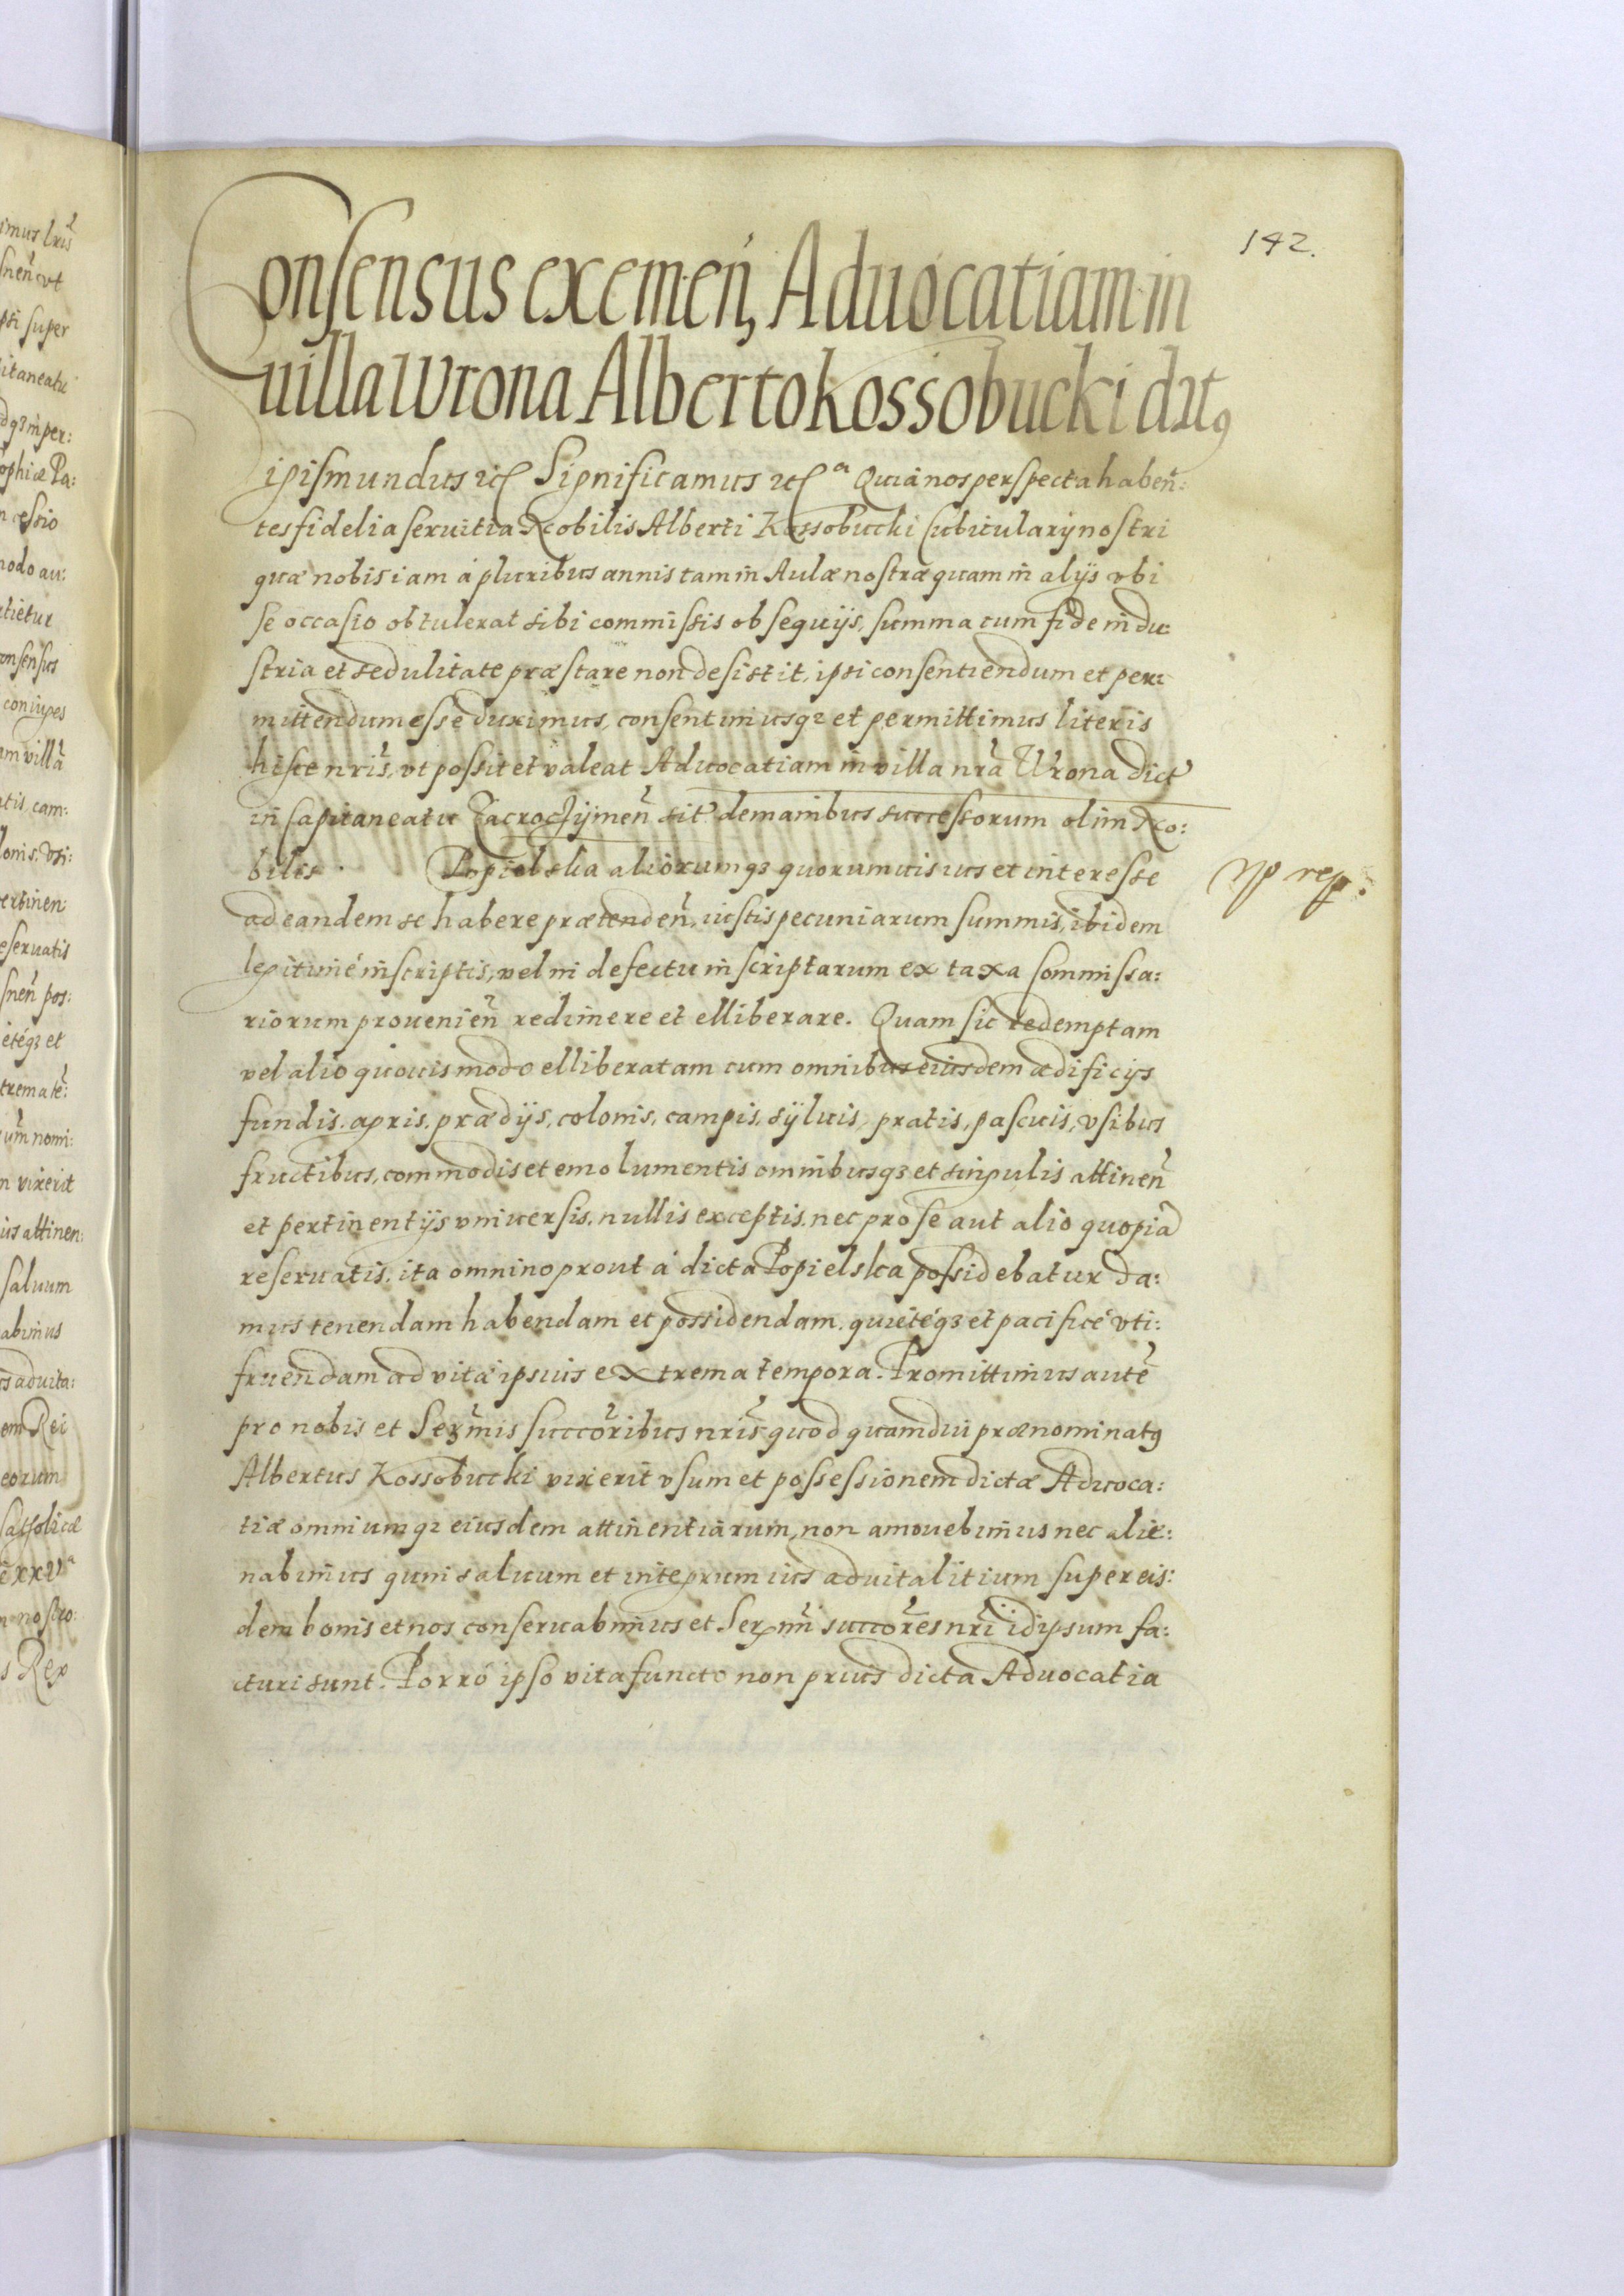 142.
Consensus exemen̄, Aduocatiam in
uilla Wrona Alberto Kossobucki dat9
Sigismundus etc Significamus etc a Quia nos perspecta haben̄:
tes fidelia seruitia Nobilis Alberti Kossobucki Cubicularij nostri
quæ nobis iam á pluribus annis tam in Aulæ nostræ quam in alijs vbi
se occasio obtulerat sibi commissis obsequijs, summa cum fide indu:
stria et sedulitate præstare non desistit, ipsi consentiendum et per:
mittendum esse duximus, consentimusq3 et permittimus literis
hisce nr̄is, vt possit et valeat Aduocatiam in villa nr̄a Wrona dict
in Capitaneatu Zacroczymen̄ sit de manibus successorum olim No:
bilis · Popielska aliorumq3 quorumuis ius et interesse
ad eandem se habere prætenden̄, iustis pecuniarum summis, ibidem
legitimé inscriptis, vel in defectu inscriptarum ex taxa Commissa:
riorum prouenien̄ redimere et elliberare. Quam sic redemptam
vel alio quouis modo elliberatam cum omnibus eiusdem ædificijs
fundis, agris, prædijs, colonis, campis, syluis, pratis, pascuis, vsibus
fructibus, commodis et emolumentis omnibusq3 et singulis attinen̄
et pertinentijs vniuersis, nullis exceptis, nec pro se aut alio quopiā
reseruatis, ita omnino prout á dicta Popielska possidebatur da:
mus tenendam habendam et possidendam, quietéq3 et pacificé vti:
fruendam ad vitæ ipsius extrema tempora. Promittimus autē
pro nobis et Ser̄mis succ̄oribus nr̄is quod quamdiu prænominat9
Albertus Kossobucki vixerit vsum et possessionem dictæ Aduoca:
tiæ omniumq3 eiusdem attinentiarum, non amouebimus nec alie:
nabimus quin saluum et integrum ius aduitalitium super eis:
dem bonis et nos conseruabimus et Ser̄mi succ̄ores nr̄i idipsum fa:
cturi sunt. Porró ipso vita functo non prius dicta Aduocatia